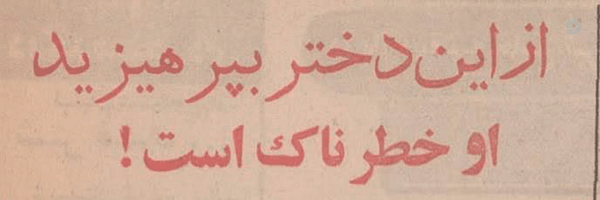 از این دختر بپرهیزید
او خطرناک است!